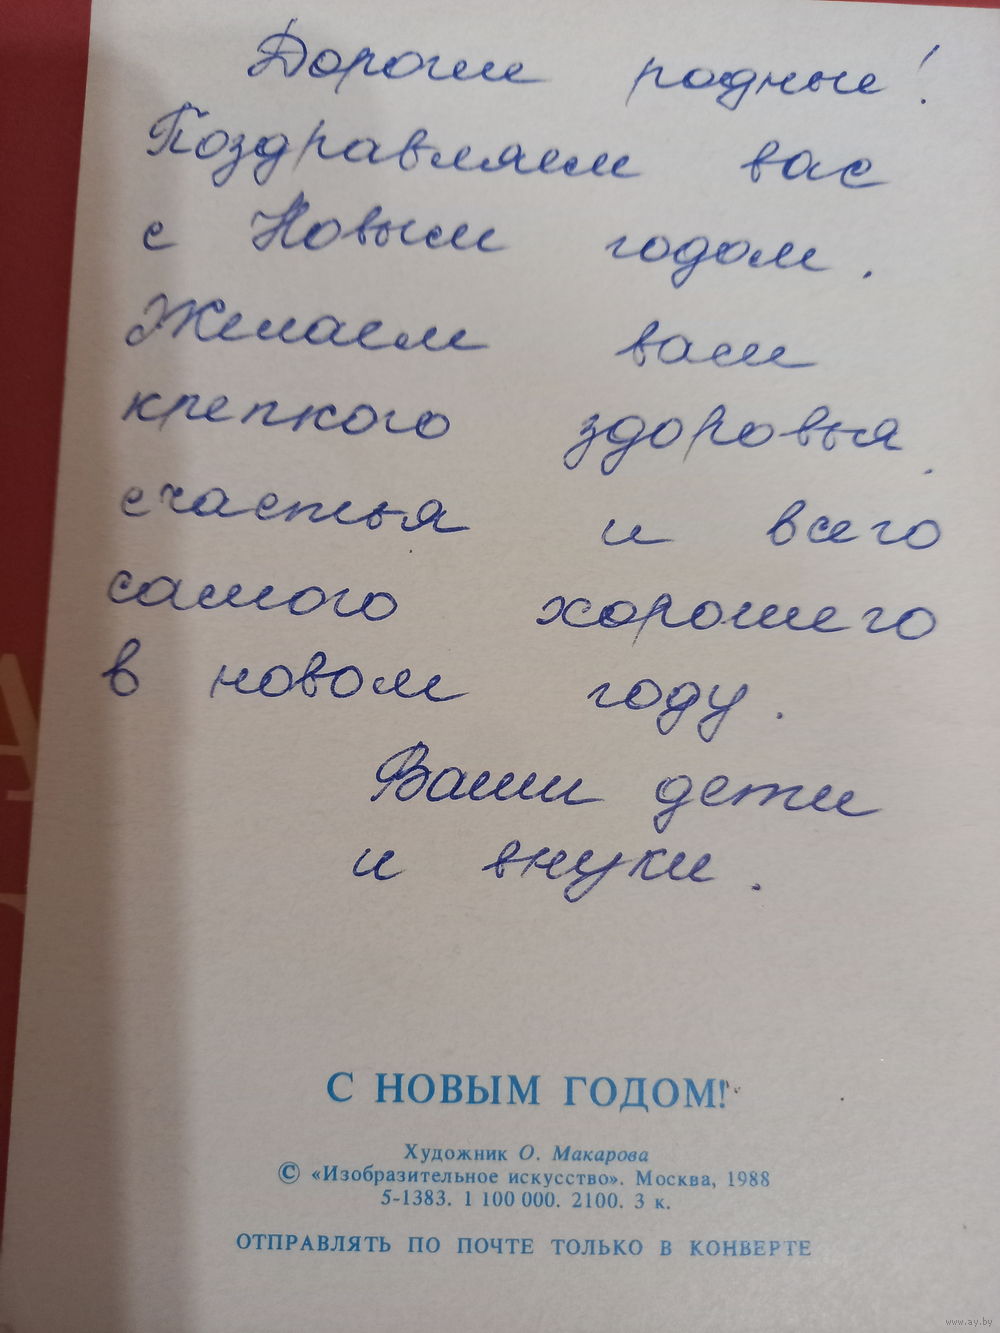 Дорогие родные!
Поздравляем вас
с Новым годом.
Желаем вам
крепкого здоровья,
счастья и всего
самого хорошего
в новом году.
Ваши дети
и внуки.
С НОВЫМ ГОДОМ!
Художник О. Макарова
© «Изобразительное искусство». Москва, 1988
5-1383. 1 100 000. 2100. 3 к.
ОТПРАВЛЯТЬ ПО ПОЧТЕ ТОЛЬКО В КОНВЕРТЕ
www.ay.by